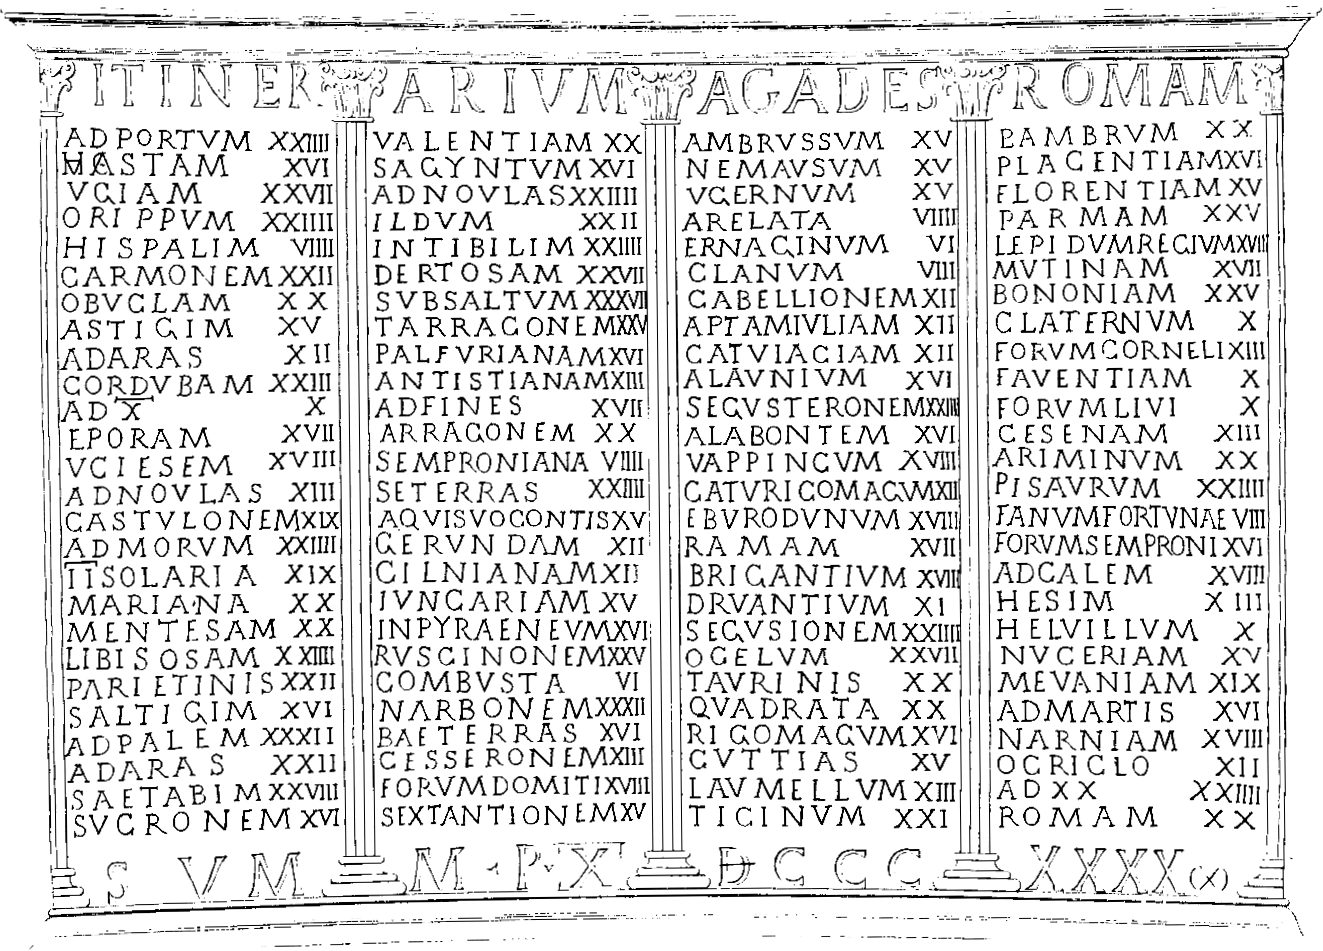 ITINERARIVM A GADES ROMAM
AD PORTVM XXIIII
HASTAM XVI
VGIAM XXVII
ORIPPVM XXIIII
HISPALIM VIIII
CARMONEM XXII
OBVCLAM XX
ASTIGIM XV
AD ARAS XII
CORDVBAM XXIII
AD X̅ X
EPORAM XVII
VCIESEM XVIII
AD NOVLAS XIII
CASTVLONEM XIX
AD MORVM XXIIII
I̅I̅ SOLARIA XIX
MARIANA XX
MENTESAM XX
LIBISOSAM XXIIII
PARIETINIS XXII
SALTIGIM XVI
AD PALEM XXXII
AD ARAS XXII
SAETABIM XXVIII
SVCRONEM XVI
VALENTIAM XX
SAGYNTVM XVI
AD NOVLAS XXIIII
ILDVM XXII
INTIBILIM XXIIII
DERTOSAM XXVII
SVBSALTVM XXXVII
TARRACONEM XXV
PALFVRIANAM XVI
ANTISTIANAM XIII
AD FINES XVII
ARRAGONEM XX
SEMPRONIANA VIIII
SETERRAS XXIIII
AQVIS VOCONTIS XV
GERVNDAM XII
CILNIANAM XII
IVNCARIAM XV
IN PYRAENEVM XVI
RVSCINONEM XXV
COMBVSTA VI
NARBONEM XXXII
BAETERRAS XVI
CESSERONEM XIII
FORVM DOMITI XVIII
SEXTANTIONEM XV
AMBRVSSVM XV
NEMAVSVM XV
VGERNVM XV
ARELATA VIIII
ERNAGINVM VI
GLANVM VIII
CABELLIONEM XII
APTAM IVLIAM XII
CATVIACIAM XII
ALAVNIVM XVI
SEGVSTERONEM XXIIII
ALABONTEM XVI
VAPPINCVM XVIII
CATVRICOMAGVM XII
EBVRODVNVM XVIII
RAMAM XVII
BRIGANTIVM XVIII
DRVANTIVM XI
SEGVSIONEM XXIIII
OCELVM XXVII
TAVRINIS XX
QVADRATA XX
RIGOMAGVM XVI
CVTTIAS XV
LAVMELLVM XIII
TICINVM XXI
EAMBRVM XX
PLACENTIAM XVI
FLORENTIAM XV
PARMAM XXV
LEPIDVM REGIVM XVIII
MVTINAM XVII
BONONIAM XXV
CLATERNVM X
FORVM CORNELI XIII
FAVENTIAM X
FORVM LIVI X
CESENAM XIII
ARIMINVM XX
PISAVRVM XXIIII
FANVM FORTVNAE VIIII
FORVM SEMPRONI XVI
AD CALEM XVIII
HESIM XIII
HELVILLVM X
NVCERIAM XV
MEVANIAM XIX
AD MARTIS XVI
NARNIAM XVIII
OCRICLO XII
AD XX XXIIII
ROMAM XX
SVM M·P·X̅I̅ DCCC XXXX(X)